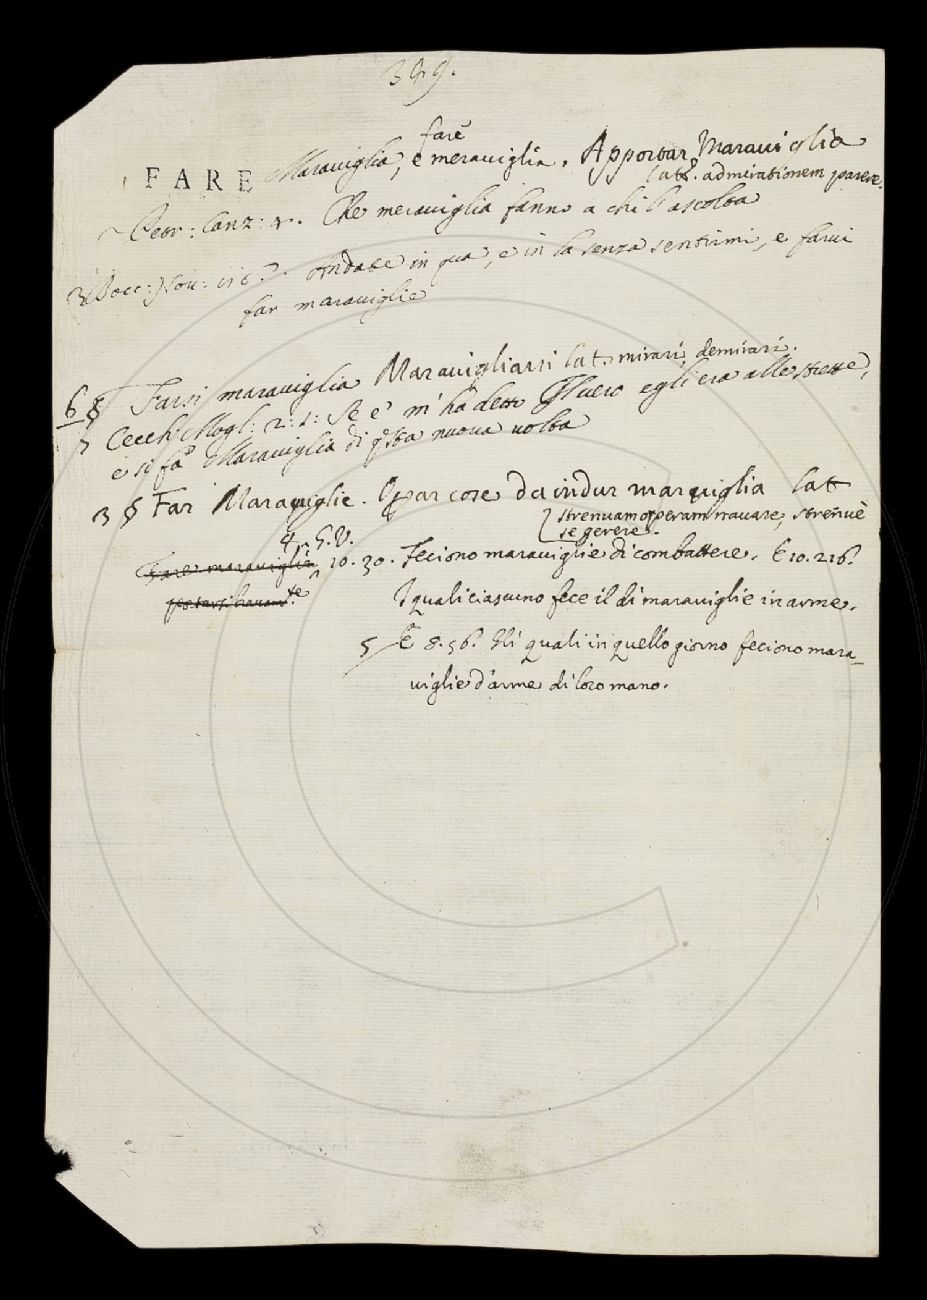 349.
fare
FARE Maraviglia, e meraviglia. Apportar Maraviglia
latt. admirationem parere.
Petr: Canz: 4. Che meraviglia fanno a chi l'ascolta
Bocc: Nov: Andate in qua, e in la senza sentirmi, e farvi
far maraviglie
6 § Farsi maraviglia Maravigliarsi lat. mirari, demirari.
7 Cecch: Mogl: 2: 1: Se e' m'ha detto il vero egli era alle strette,
e si fa Maraviglia di qsta nuova volta
3 § Far Maraviglie. Oparcose da indur maraviglia lat
strenuam operam navare, strenuè
se gerere.
4 G. V.
Fare maraviglie 10. 30. Feciono maraviglie di combattere. E 10. 216.
I quali ciascuno fece il di maraviglie in arme.
5 E 8. 56. Gli quali in quello giorno feciono mara-
viglie d'arme di loro mano.